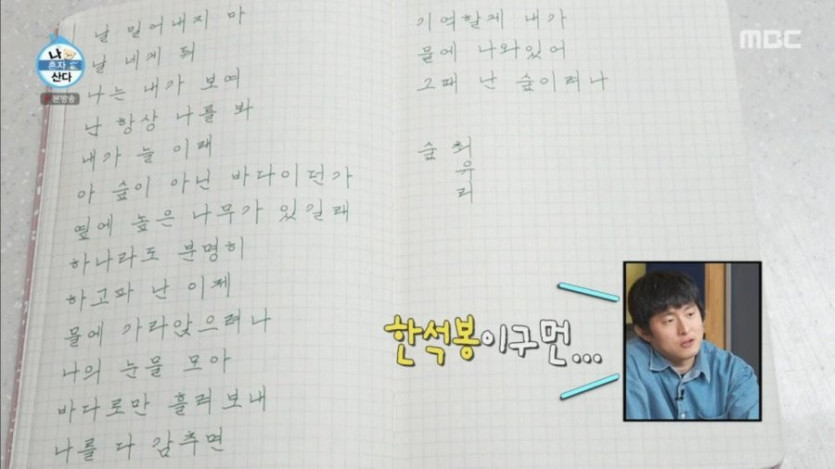 날 밀어내지 마
날 네게 둬
나는 내가 보여
난 항상 나를 봐
내가 늘 이래
아 숲이 아닌 바다이던가
옆에 높은 나무가 있길래
하나라도 분명히
하고파 난 이제
물에 가라앉으려나
나의 눈물 모아
바다로만 흘려보내
나를 다 감추면
기억할게 내가
물에 나와있어
그때 난 숲이려나
숲 최유리
나 혼자 산다
본방송
MBC
한석봉이구먼...